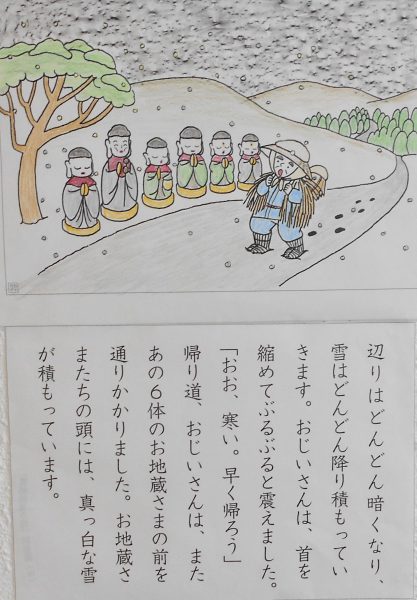 辺りはどんどん暗くなり、
雪はどんどん降り積もってい
きます。おじいさんは、首を
縮めてぶるぶると震えました。
「おお、寒い。早く帰ろう」
帰り道、おじいさんは、また
あの６体のお地蔵さまの前を
通りかかりました。お地蔵さ
またちの頭には、真っ白な雪
が積もっています。